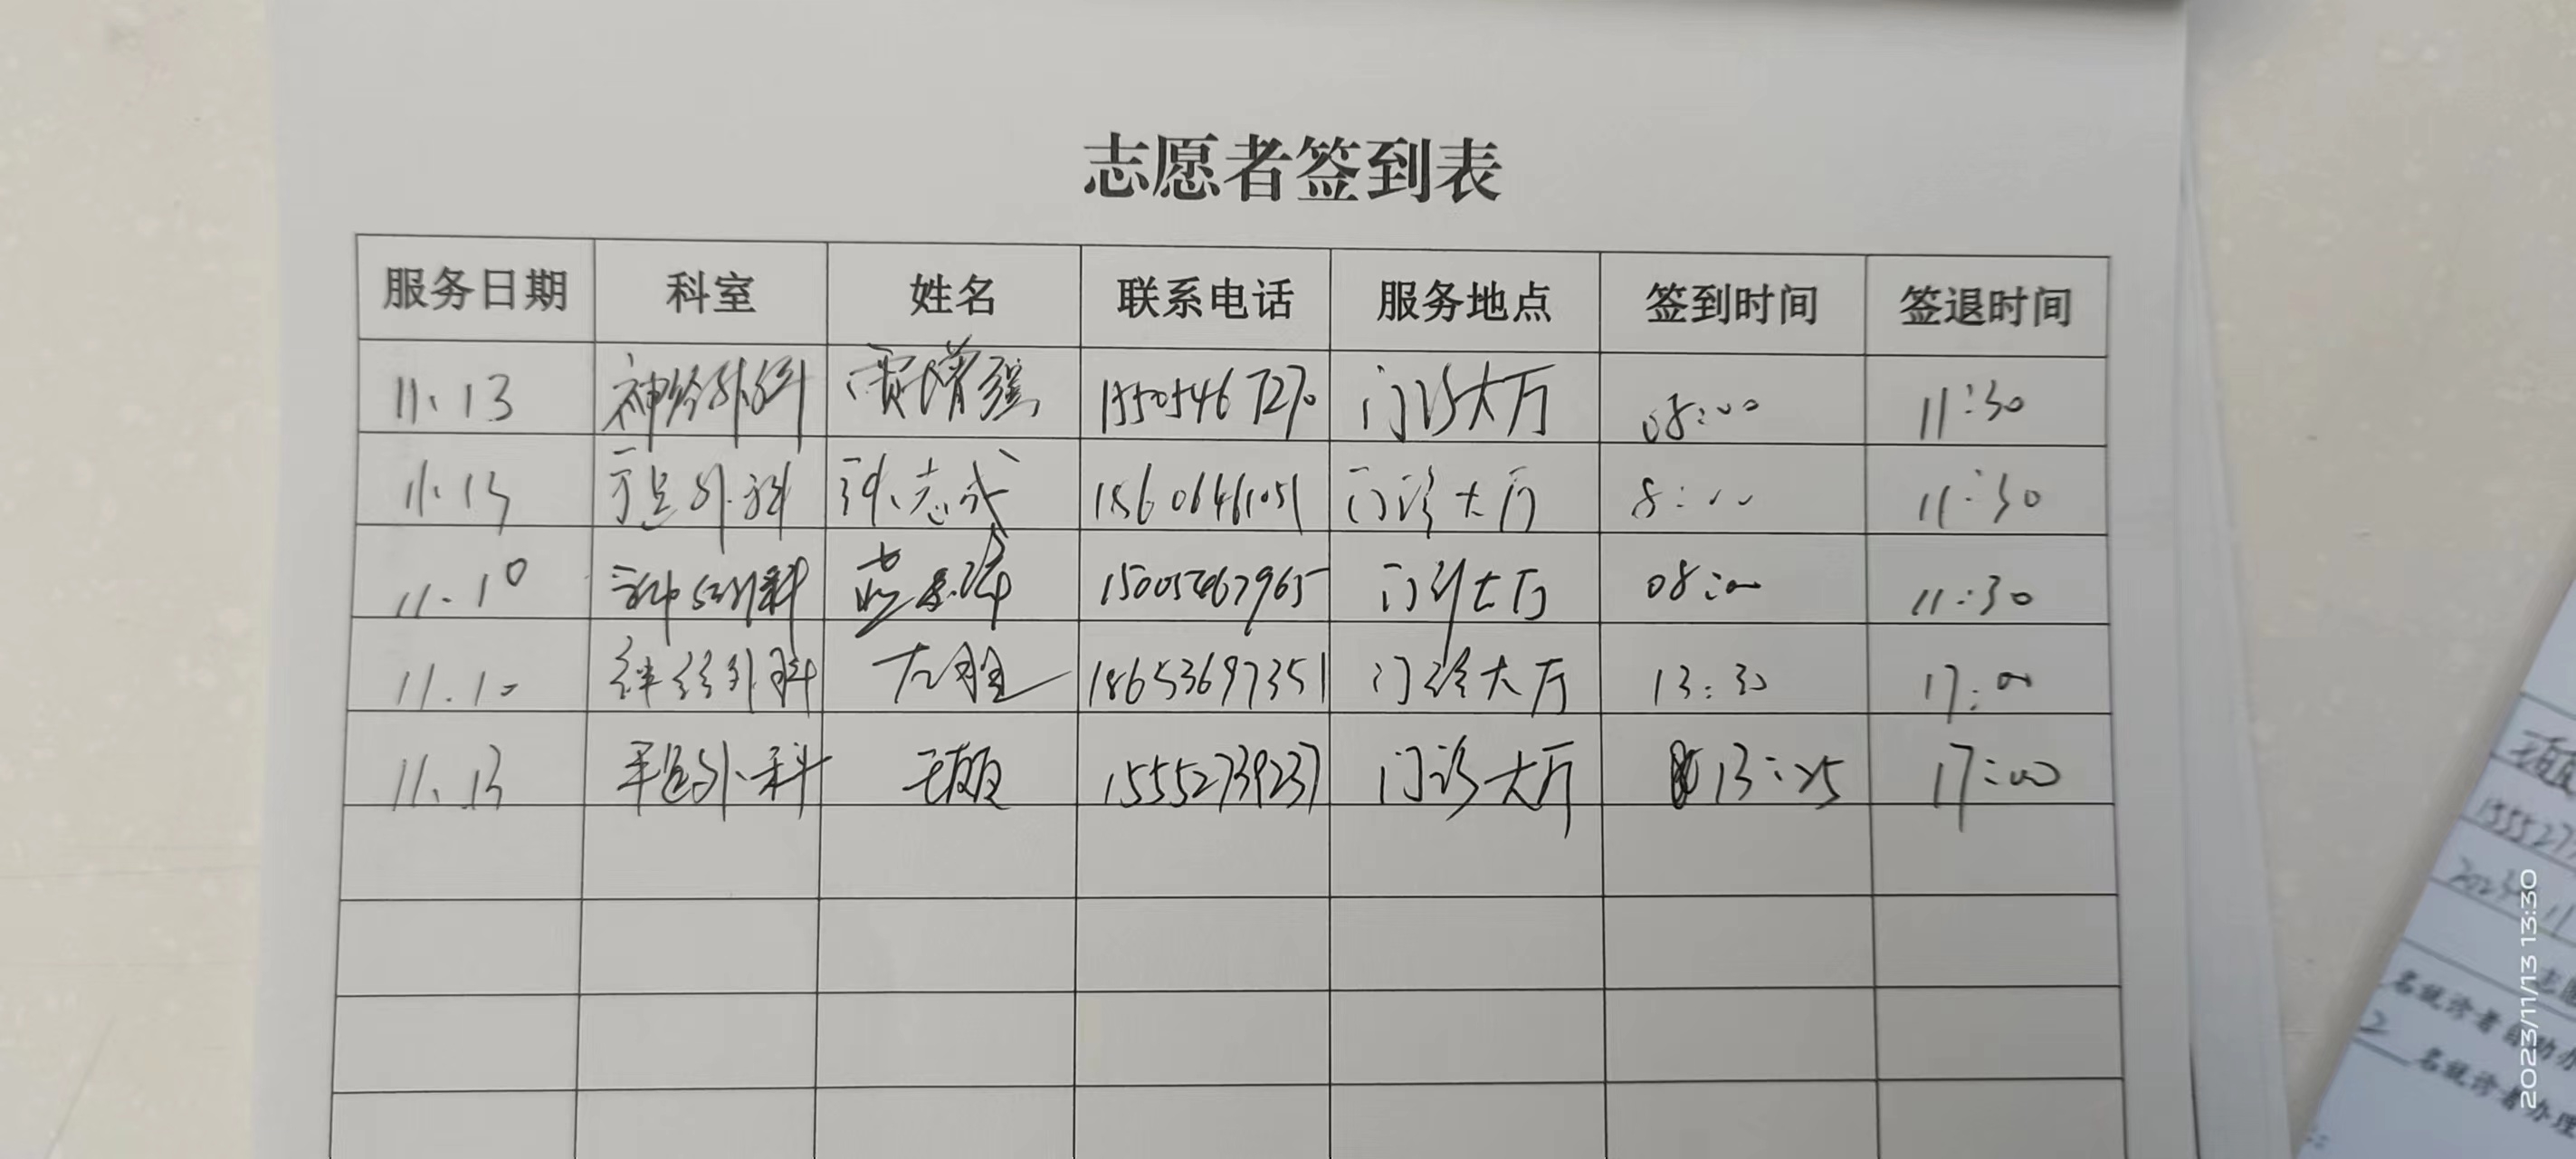 志愿者签到表
服务日期 科室 姓名 联系电话 服务地点 签到时间 签退时间
11.13 神经外科 贾增强 15505467270 门诊大厅 08:00 11:30
11.13 手足外科 志武 18606461051 门诊大厅 8:00 11:30
11.10 神经外科 15005467965 门诊大厅 08:00 11:30
11.10 神经外科 左胜 18653697351 门诊大厅 13:30 17:00
11.13 手足外科 15552739237 门诊大厅 13:25 17:00
155527
2023 11
名就诊者自助办
2 名就诊者办理
2023/11/13 13:30